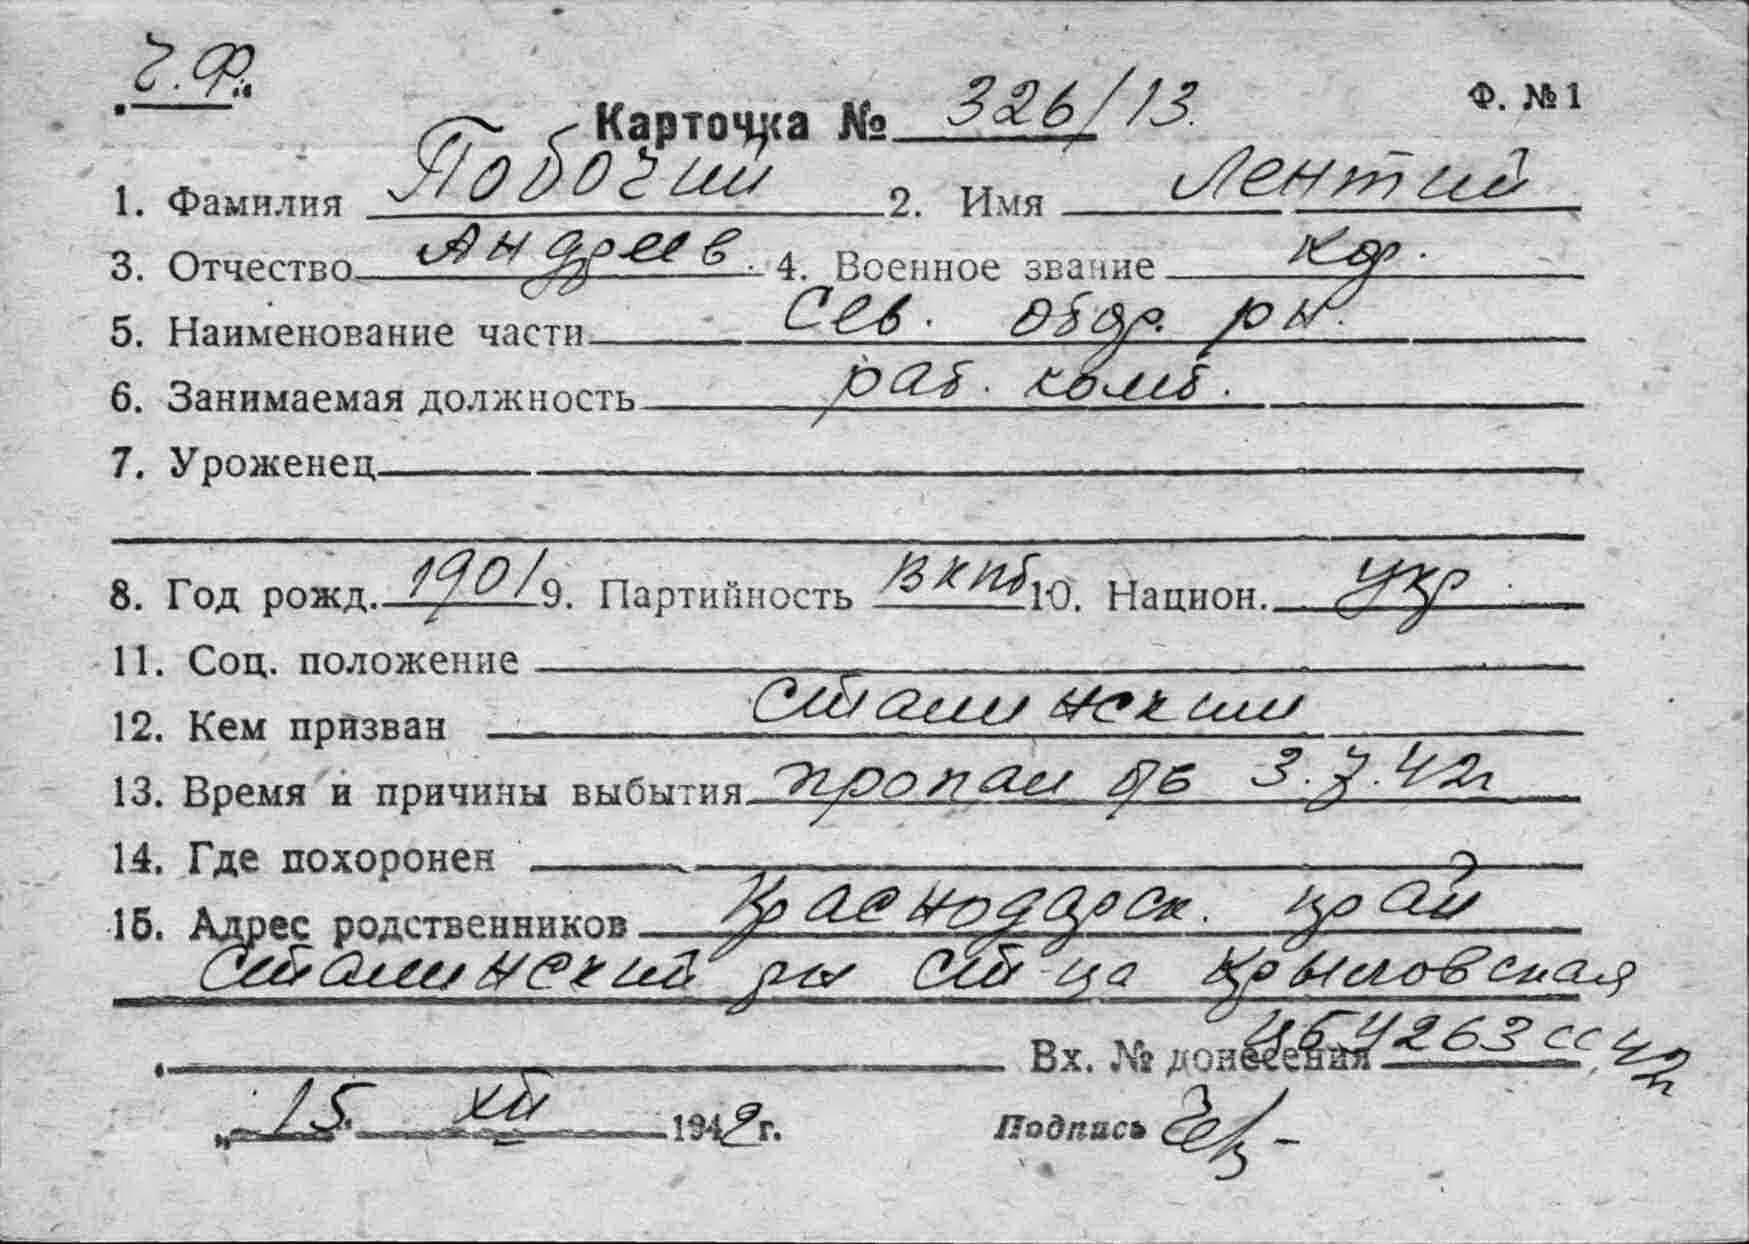 Ч.Ф.
Карточка № 326/13. Ф. № 1
1. Фамилия Побочий 2. Имя Лентий
3. Отчество Андреев. 4. Военное звание кр.
5. Наименование части Сев. обор. рн.
6. Занимаемая должность раб. комб.
7. Уроженец
8. Год рожд. 1901 9. Партийность ВКПб 10. Национ. Укр
11. Соц. положение
12. Кем призван Сталинским
13. Время и причины выбытия пропал б/в 3.7.42г
14. Где похоронен
15. Адрес родственников Краснодарск. край
Сталинский рн ст-ца Крыловская
Вх. № донесения 4263 сс 42г
„15" XII 1942 г. Подпись